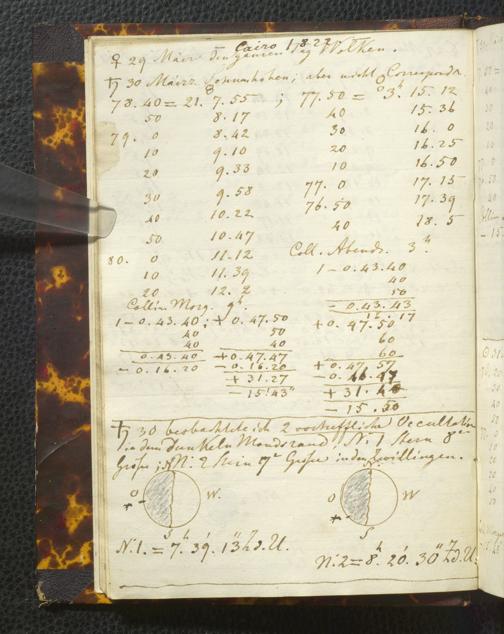 Cairo 1822
♀ 29 März den ganzen Tag Wolken.
♄ 30 März Sonnenhöhen; aber nicht Correspondr.
78.40 = 21. 7.55 ; 77.50 = 3h. 15. 12
50 8.17 40 15.36
79. 0 8.42 30 16. 0
10 9.10 20 16.25
20 9.33 10 16.50
30 9.58 77. 0 17.15
40 10.22 76.50 17.39
50 10.47 40 18. 5
80. 0 11.12 Coll. Abends. 3h.
10 11.39 1 - 0.43.40
20 12. 2 40
Collim Morg. 9h. 50
1 - 0.43.40 ; + 0.47.50 - 0.43.43
40 50 16.17
40 40 + 0.47.50
0.43.40 + 0.47.47 60
- 0.16.20 - 0.16.20 60
+ 31.27 + 0.47.57
- 15'43" + 31.40
- 15.50
♄ 30 beobachtete ich 2 vortreffliche Occultation
in den Dunkeln Mondsrand N. 1 Stern 8er
Größe; N: 2 Stern 7r Größe in den Zwillingen.
N. N.
O W. O W.
S S
N. 1. = 7h. 39'. 13" Z. d. U.
N: 2 = 8h. 20'. 30" Z. d. U.